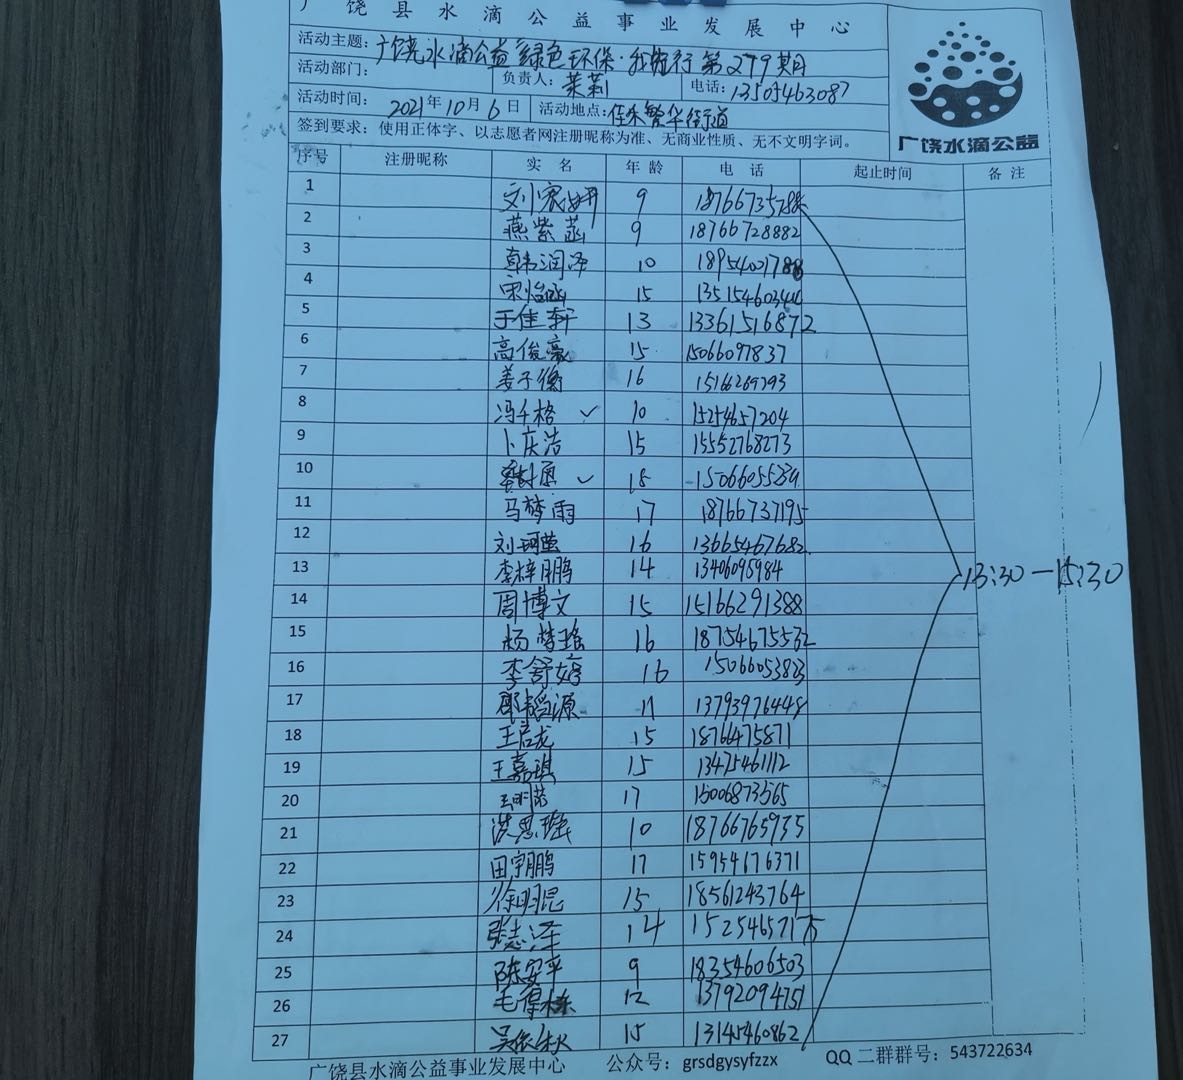 广饶县水滴公益事业发展中心
活动主题：广饶水滴公益 绿色环保·我先行 第279期
活动部门： 负责人：茉莉 电话：13505463087
活动时间：2021年10月6日 活动地点：佳乐繁华街道
签到要求：使用正体字、以志愿者网注册昵称为准、无商业性质、无不文明字词。
广饶水滴公益
序号 注册昵称 实名 年龄 电话 起止时间 备注
1 刘宸妍 9 18766735788
2 燕紫菡 9 18766728882
3 润泽 10 18954007788
4 宋怡 15
5 于佳轩 13 13361516872
6 高俊豪 15 15066097837
7 姜子衡 16 1516289293
8 冯千格 ✓ 10 15254657204
9 卜庆浩 15 15552768273
10 ✓ 18
11 马梦雨 17 18766737195
12 刘珂莹 16 13665467682
13 李梓鹏 14 1340695984
14 周博文 15 15166291388
15 杨梦瑶 16 18754675532
16 李舒婷 16 15066053823
17 韬源 11 13793976448
18 王启龙 15 18766475871
19 王嘉琪 15 13475461112
20 王明 17 15006873565
21 洪思瑶 10 18766765935
22 田宇鹏 17 15954676371
23 徐明昆 15 18561243764
24 张志泽 14 152546571
25 陈安平 9 18354606503
26 毛得栋 12 13792094751
27 吴 15 13145460862
13:30—15:30
广饶县水滴公益事业发展中心 公众号：grsdgysyfzzx QQ二群群号：543722634